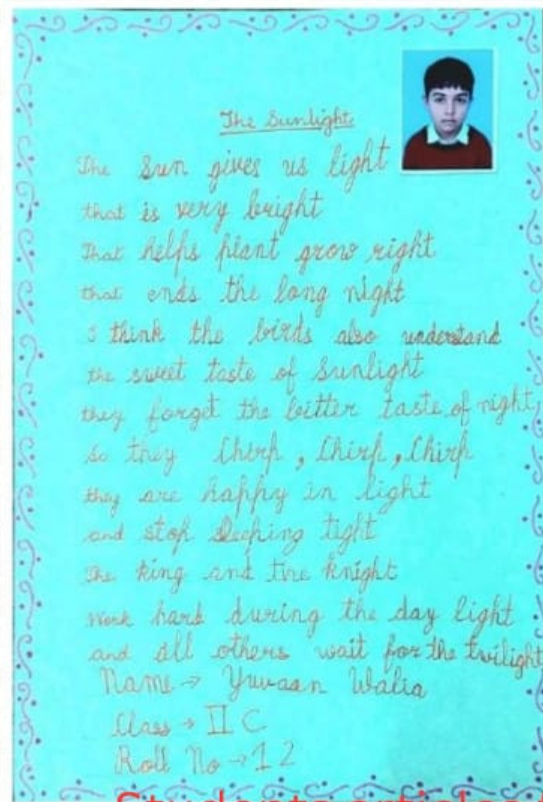 The Sunlight
The Sun gives us light
that is very bright
That helps plant grow right
that ends the long night
I think the birds also understand
the sweet taste of Sunlight
they forget the bitter taste of night,
So they Chirp, Chirp, Chirp
they are happy in light
and stop Sleeping tight
The king and the knight
Work hard during the day light
and all others wait for the twilight
Name → Yuvaan Walia
Class → II C
Roll No → 12